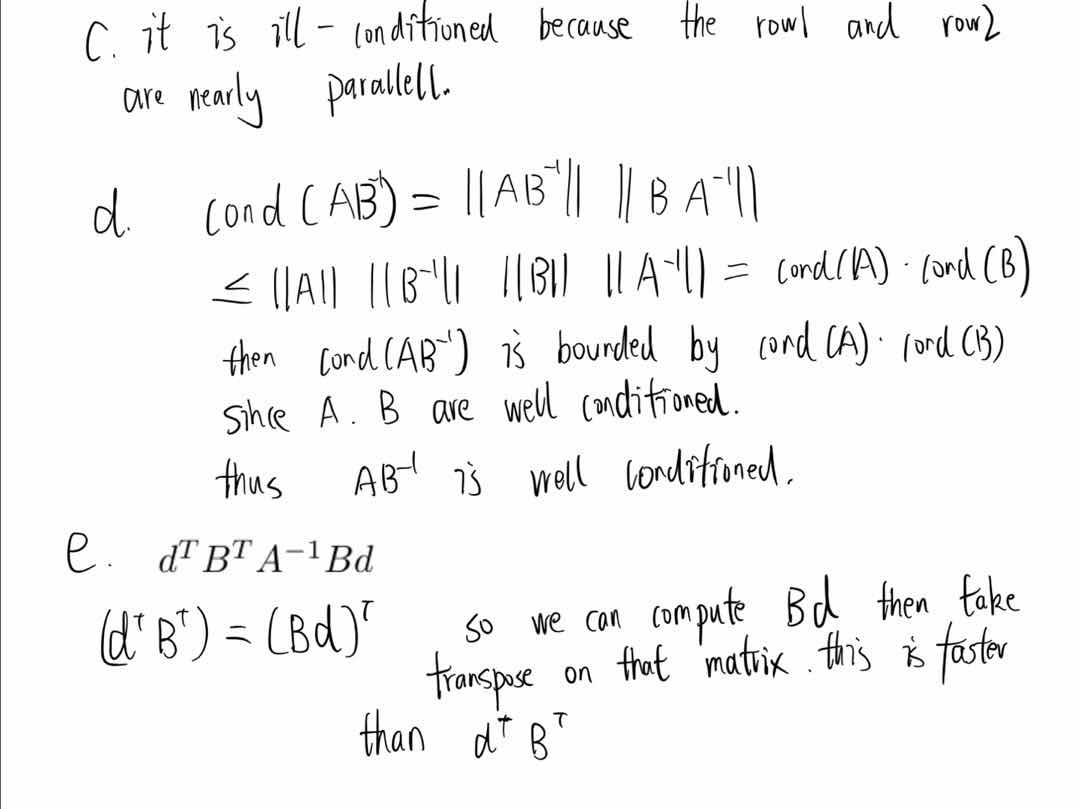 C. it is ill-conditioned because the row1 and row2
are nearly parallell.
d. cond(AB⁻¹) = ||AB⁻¹|| ||BA⁻¹||
≤ ||A|| ||B⁻¹|| ||B|| ||A⁻¹|| = cond(A) · cond(B)
then cond(AB⁻¹) is bounded by cond(A) · cond(B)
since A. B are well conditioned.
thus AB⁻¹ is well conditioned.
e. dᵀBᵀA⁻¹Bd
(dᵀBᵀ) = (Bd)ᵀ so we can compute Bd then take
transpose on that matrix. this is faster
than dᵀBᵀ